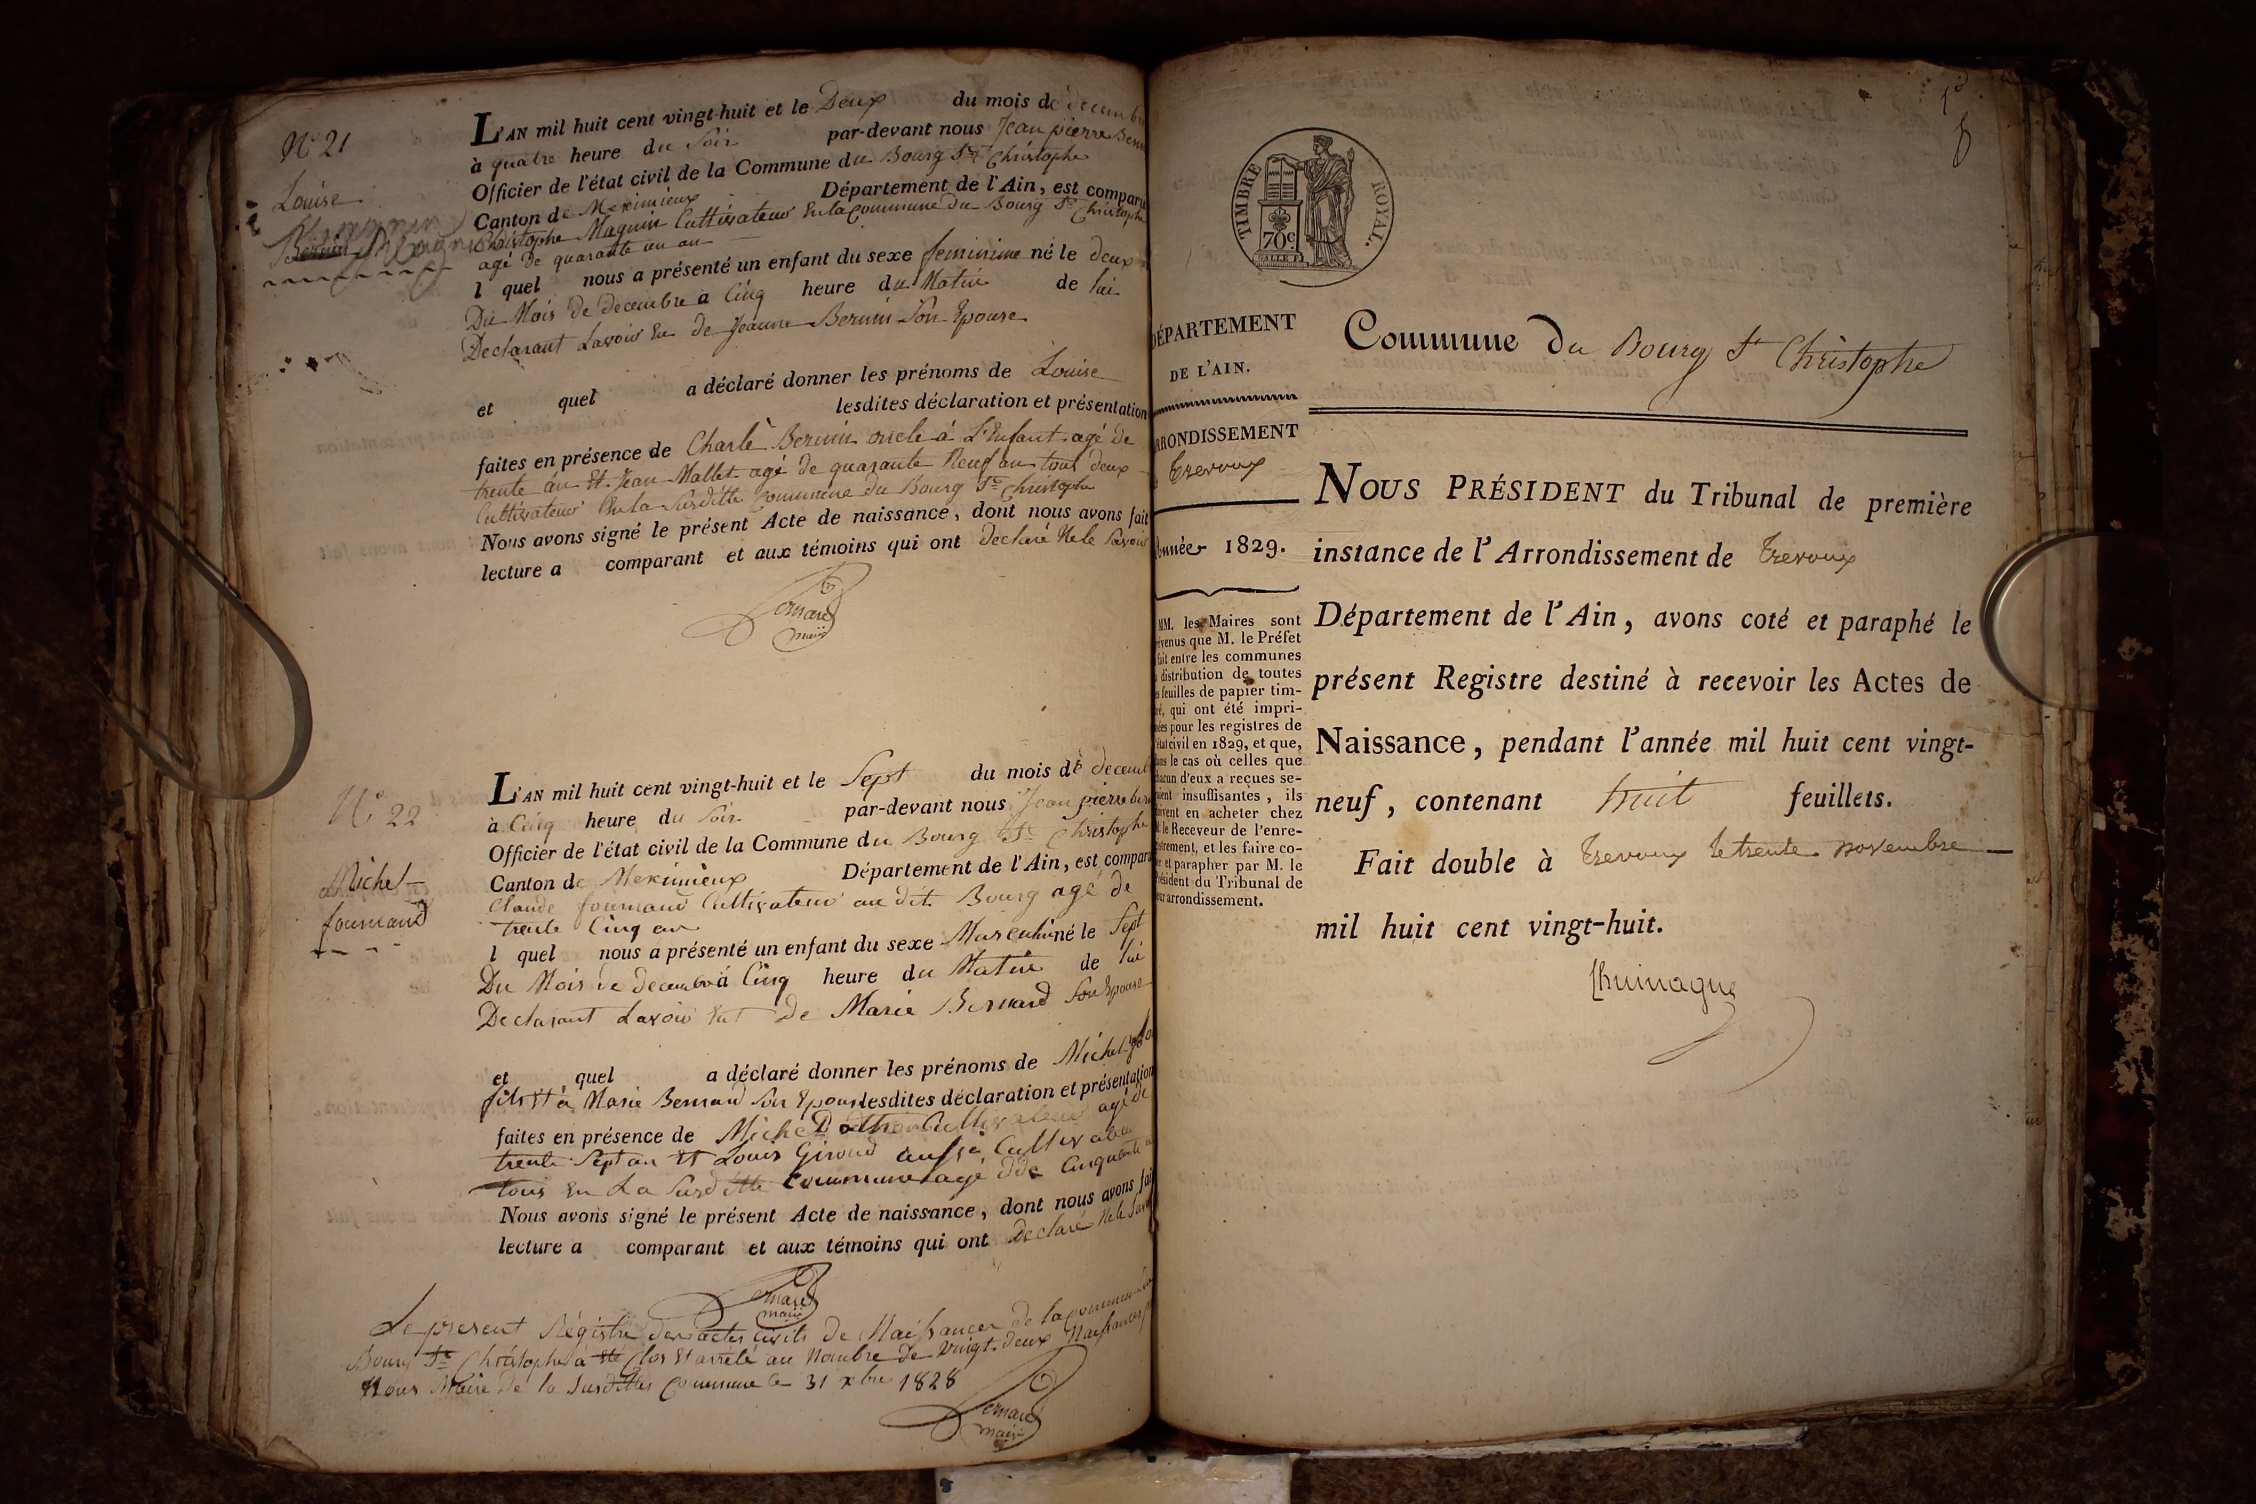 N° 21
Louise
Bernin Maguin
L'AN mil huit cent vingt-huit et le Deux du mois de decembre
à quatre heure du Soir par-devant nous Jean pierre
Officier de l'état civil de la Commune du Bourg St Christophe
Canton de Meximieux Département de l'Ain, est comparu
Christophe Maguin Cultivateur En la Commune du Bourg St Christophe
agé De quarante un an
l quel nous a présenté un enfant du sexe feminime né le deux
Du Mois De decembre a Cinq heure du Matin de lui
Declarant Lavoir Eu de Jeanne Bernin Son Epouse
et quel a déclaré donner les prénoms de Louise
lesdites déclaration et présentation
faites en présence de Charle Bernin oncle á L'Enfant agé de
trente án Et Jean Mallet agé de quarante Neuf an tout deux
Cultivateur En la Surditte Commune du Bourg St Christophe
Nous avons signé le présent Acte de naissance, dont nous avons fait
lecture a comparant et aux témoins qui ont declaré Ne le Savoir
Bernard
maire
N° 22
Michel
fournand
L'AN mil huit cent vingt-huit et le Sept du mois de
à Cinq heure du Soir par-devant nous Jean pierre
Officier de l'état civil de la Commune du Bourg St Christophe
Canton de Meximieux Département de l'Ain, est compar
Claude fournand Cultivateur au dit Bourg agé de
trente Cinq an
l quel nous a présenté un enfant du sexe Masculin né le Sept
Du Mois de decembre á Cinq heure du Matin de lui
Declarant Lavoir Eut de Marie Bernard Son Epouse
et quel a déclaré donner les prénoms de Michel
fils Et á Marie Bernard Son Epouse lesdites déclaration et présentation
faites en présence de Michel Cultivateur agé de
trente Sept an Et Louis Giroud aussi Cultivateur
tous En La Surditte Commune agé de Cinquante
Nous avons signé le présent Acte de naissance, dont nous avons fai
lecture a comparant et aux témoins qui ont Declaré Ne le
Bernard
maire
Le present Régistre des actes civils de Naissances de la commune
Bourg St Christophe á Clos Et arrété au Nombre de Vingt deux Naissances
Nous Maire de la Surdittes Commune le 31 xbre 1828
Bernard
maire
TIMBRE ROYAL.
70c.
DÉPARTEMENT
DE L'AIN.
RRONDISSEMENT
Trevoux
Année 1829.
MM. les Maires sont
venus que M. le Préfet
fait entre les communes
distribution de toutes
es feuilles de papier tim-
ré, qui ont été impri-
mées pour les registres de
état civil en 1829, et que,
ans le cas où celles que
hacun d'eux a reçues se-
oient insuffisantes, ils
oivent en acheter chez
le Receveur de l'enre-
istrement, et les faire co-
er et parapher par M. le
résident du Tribunal de
eur arrondissement.
Commune Du Bourg St Christophe
NOUS PRÉSIDENT du Tribunal de première
instance de l'Arrondissement de Trevoux
Département de l'Ain, avons coté et paraphé le
présent Registre destiné à recevoir les Actes de
Naissance, pendant l'année mil huit cent vingt-
neuf, contenant huit feuillets.
Fait double à Trevoux le trente novembre
mil huit cent vingt-huit.